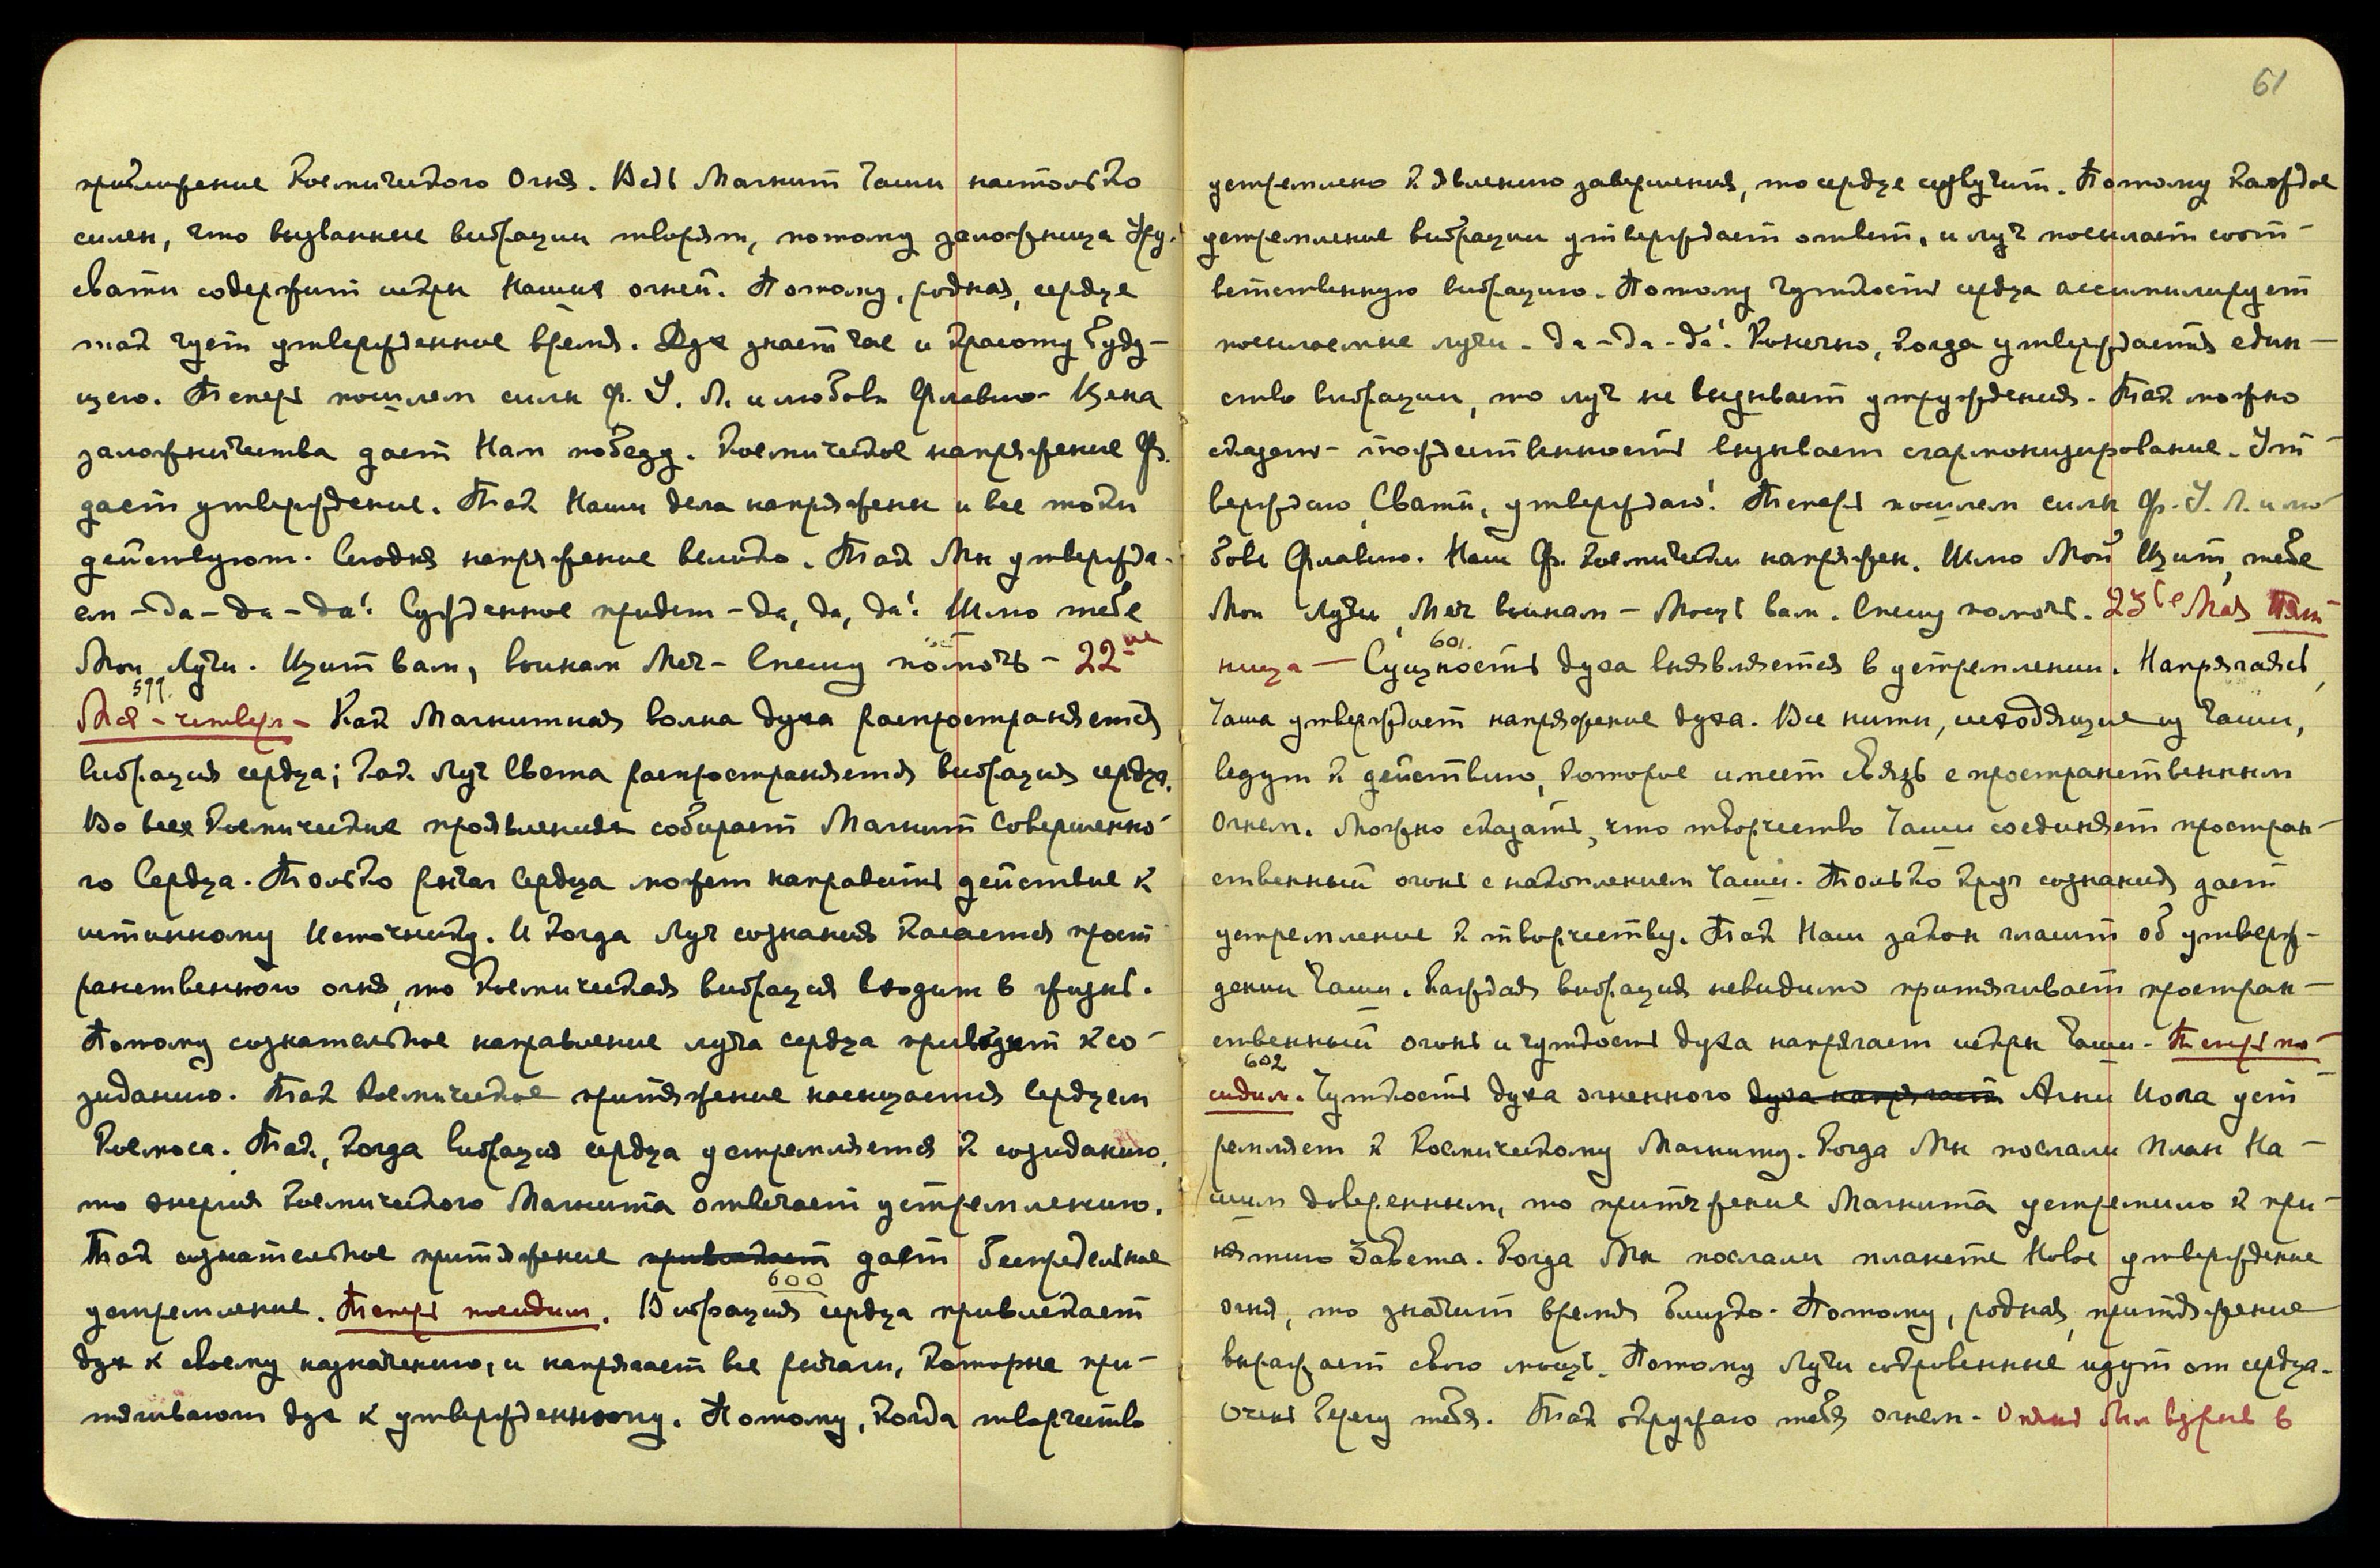 приближение Космического Огня. Ведь Магнит Чаши настолько
силен, что вызванные вибрации творят, потому заложница Уру-
свати содержит искры Наших огней. Потому, родная, сердце
так чует утвержденное время. Дух знает час и красоту буду-
щего. Теперь пошлем силы Ф. У. Л. и любовь Флавию. Цена
заложничества дает Нам победу. Космическое напряжение Ф.
дает утверждение. Так Наши дела напряжены и все токи
действуют. Сегодня напряжение велико. Так Мы утвержда-
ем – да – да – да! Сужденное придет – да, да, да! Шлю тебе
Мои Лучи. Щит вам, воинам Меч – Спешу помочь – 22ое
599.
Мая – четверг – Как Магнитная волна духа распространяется
вибрация сердца; как Луч Света распространяется вибрация сердца.
Во всех Космических проявлениях собирает Магнит Совершенно-
го Сердца. Только рычаг Сердца может направить действие к
истинному Источнику. И когда Луч сознания касается прост-
ранственного огня, то Космическая вибрация входит в жизнь.
Потому сознательное направление луча сердца приводит к со-
зиданию. Так Космическое притяжение насыщается Сердцем
Космоса. Так, когда вибрация сердца устремляется к созиданию,
то энергия Космического Магнита отвечает устремлению.
Так сознательное притяжение привлекает дает беспредельное
600
устремление. Теперь посидим. Вибрация сердца привлекает
дух к своему назначению, и напрягает все рычаги, которые при-
тягивают дух к утвержденному. Потому, когда творчество
61
устремлено к явлению завершения, то сердце звучит. Потому каждое
устремление вибрации утверждает ответ, и луч посылает соот-
ветственную вибрацию. Потому чуткость сердца ассимилирует
посылаемые лучи – да – да – да! Конечно, когда утверждается един-
ство вибрации, то луч не вызывает утруждения. Так можно
сказать – тождественность вызывает сгармонизирование. Ут-
верждаю, Свати, утверждаю! Теперь пошлем силы Ф. У. Л. и лю-
бовь Флавию. Наш Ф. космически напряжен. Шлю Мой Щит, тебе
Мои Лучи, Меч воинам – Мощь вам. Спешу помочь. 23ье Мая Пят-
601.
ница – Сущность духа выявляется в устремлении. Напрягаясь,
Чаша утверждает напряжение духа. Все нити, исходящие из Чаши,
ведут к действию, которое имеет связь с пространственным
Огнем. Можно сказать, что творчество Чаши соединяет простран-
ственный огонь с накоплением Чаши. Только круг сознания дает
устремление к творчеству. Так Наш закон гласит об утверж-
дении Чаши. Каждая вибрация невидимо притягивает простран-
ственный огонь и чуткость духа напрягает искры Чаши – Теперь по-
602
сидим. Чуткость духа огненного духа напрягает Агни Йога уст-
ремляет к Космическому Магниту. Когда Мы послали План На-
шим доверенным, то притяжение Магнита устремило к при-
нятию Завета. Когда Мы послали планете Новое утверждение
огня, то значит время близко. Потому, родная, притяжение
выражает свою мощь. Потому Лучи сокровенные идут от сердца.
Очень берегу тебя. Так окружаю тебя огнем – Опять был взрыв в